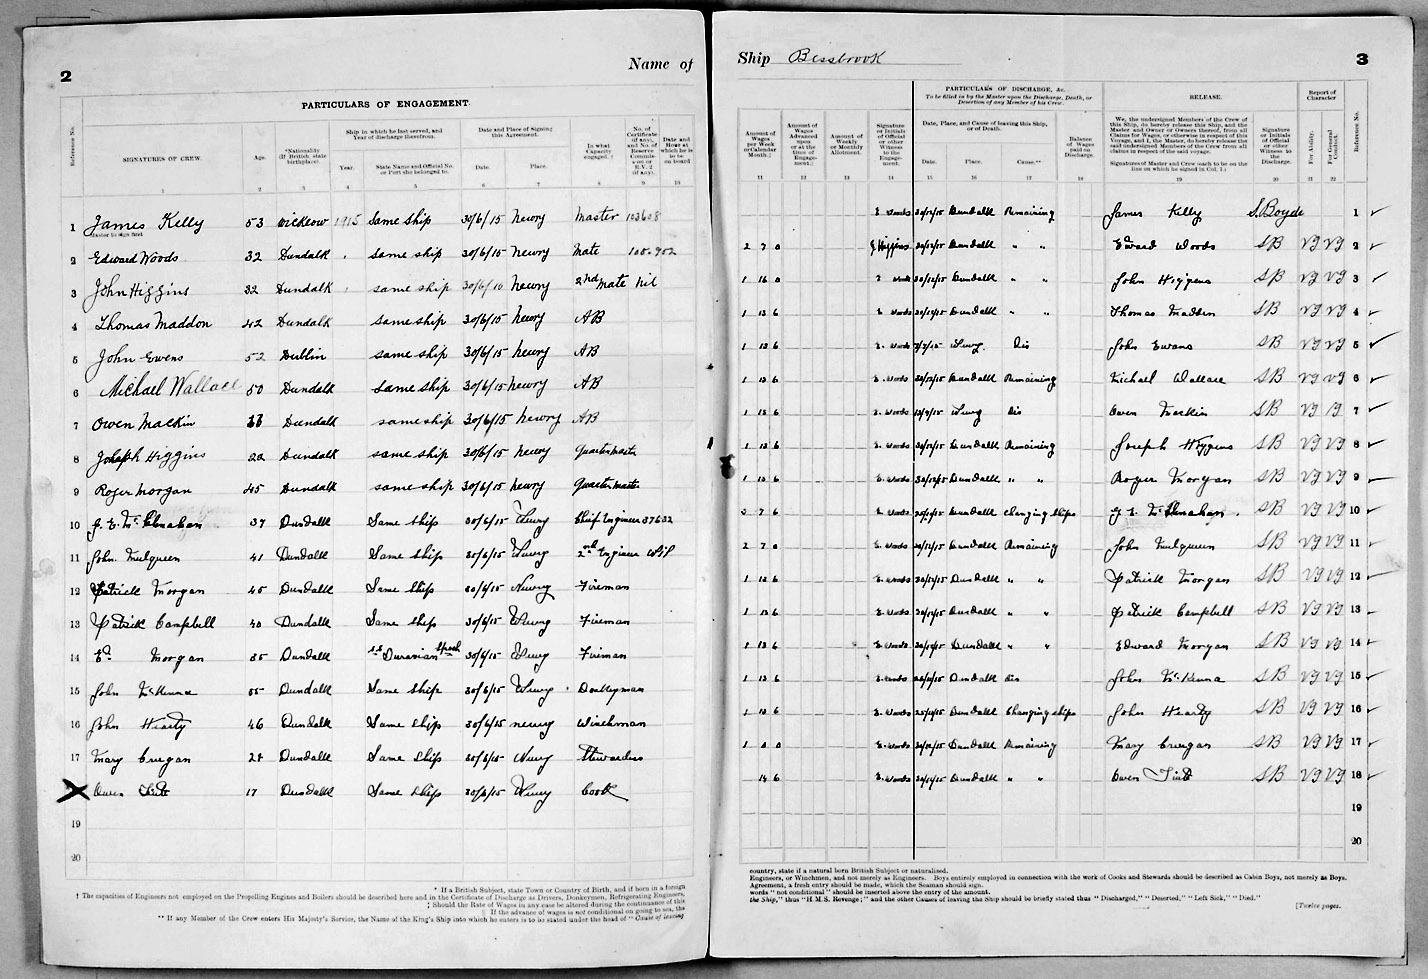 2
Name of
PARTICULARS OF ENGAGEMENT.
Reference No.
SIGNATURES OF CREW.
Age.
*Nationality (If British, state birthplace).
Ship in which he last served, and Year of discharge therefrom.
Year.
State Name and Official No. or Port she belonged to.
Date and Place of Signing this Agreement.
Date.
Place.
In what Capacity engaged.†
No. of Certificate (if any), and No. of Reserve Commission or R.V. 2 (if any).
Date and Hour at which he is to be on board
1 2 3 4 5 6 7 8 9 10
1 James Kelly 53 Wicklow 1915 Same ship 30/6/15 Newry Master 103608
Master to sign first
2 Edward Woods 32 Dundalk same ship 30/6/15 Newry Mate
3 John Higgins 32 Dundalk same ship Newry 2nd mate Nil
4 Thomas Maddon 42 Dundalk same ship 30/6/15 Newry AB
5 John Ewens 52 Dublin same ship 30/6/15 Newry AB
6 Michael Wallace 50 Dundalk same ship 30/6/15 Newry AB
7 Owen Mackin 33 Dundalk same ship 30/6/15 Newry AB
8 Joseph Higgins 22 Dundalk same ship 30/6/15 Newry Quartermaster
9 Roger Morgan 45 Dundalk same ship 30/6/15 Newry Quartermaster
10 J. E. McClenahan 37 Dundalk Same ship 30/6/15 Newry Chief Engineer 37632
11 John Mulqueen 41 Dundalk Same ship 30/6/15 Newry 2nd Engineer Nil
12 Patrick Morgan 45 Dundalk Same ship 30/6/15 Newry Fireman
13 Patrick Campbell 40 Dundalk Same ship 30/6/15 Newry Fireman
14 Ed. Morgan 35 Dundalk 30/6/15 Newry Fireman
15 John McKenna 55 Dundalk Same ship 30/6/15 Newry Donkeyman
16 John Hearty 46 Dundalk Same ship 30/6/15 Newry Winchman
17 Mary Creegan 28 Dundalk Same ship 30/6/15 Newry Stewardess
18 Owen 17 Dundalk Same ship 30/6/15 Newry Cook
19
20
* If a British Subject, state Town or Country of Birth, and if born in a foreign
† The capacities of Engineers not employed on the Propelling Engines and Boilers should be described here and in the Certificate of Discharge as Drivers, Donkeymen, Refrigerating Engineers,
‡ Should the Rate of Wages in any case be altered during the continuance of this
|| If the advance of wages is not conditional on going to sea, the
** If any Member of the Crew enters His Majesty's Service, the Name of the King's Ship into which he enters is to be stated under the head of "Cause of leaving
Ship Bessbrook
3
Amount of Wages per Week or Calendar Month.‡
Amount of Wages Advanced upon or at the time of Engagement.||
Amount of Weekly or Monthly Allotment.
Signature or Initials of Official or other Witness to the Engagement.
PARTICULARS OF DISCHARGE, &c.
To be filled in by the Master upon the Discharge, Death, or Desertion of any Member of his Crew.
Date, Place, and Cause of leaving this Ship, or of Death.
Date.
Place.
Cause.**
Balance of Wages paid on Discharge.
RELEASE.
We, the undersigned Members of the Crew of this Ship, do hereby release this Ship, and the Master and Owner or Owners thereof, from all Claims for Wages, or otherwise in respect of this Voyage, and I, the Master, do hereby release the said undersigned Members of the Crew from all claims in respect of the said voyage.
Signatures of Master and Crew (each to be on the line on which he signed in Col. 1.)
Signature or Initials of Official or other Witness to the Discharge.
Report of Character
For Ability.
For General Conduct.
Reference No.
11 12 13 14 15 16 17 18 19 20 21 22
E Woods 30/12/15 Dundalk Remaining James Kelly S. Boyde 1
2 7 0 J Higgins 30/12/15 Dundalk " " Edward Woods SB VG VG 2
1 16 0 E Woods 30/12/15 Dundalk " " John Higgins SB VG VG 3
1 13 6 E Woods 30/12/15 Dundalk " " Thomas Madden SB VG VG 4
1 13 6 E. Woods Newry. Dis John Ewans SB VG VG 5
1 13 6 E. Woods 30/12/15 Dundalk Remaining Michael Wallace SB VG VG 6
1 13 6 E. Woods Newry Dis Owen Mackin SB VG VG 7
1 13 6 E. Woods 30/12/15 Dundalk Remaining Joseph Higgins SB VG VG 8
1 13 6 E. Woods 30/12/15 Dundalk " " Roger Morgan SB VG VG 9
7 6 E. Woods Dundalk Changing ships J. E. McClenahan. SB VG VG 10
2 7 0 E. Woods 30/12/15 Dundalk Remaining John Mulqueen SB VG VG 11
1 13 6 E. Woods 30/12/15 Dundalk " " Patrick Morgan SB VG VG 12
1 13 6 E. Woods 30/12/15 Dundalk " " Patrick Campbell SB VG VG 13
1 13 6 E. Woods 30/12/15 Dundalk " " Edward Morgan SB VG VG 14
1 13 6 E. Woods Dundalk dis John McKenna SB VG VG 15
1 13 6 E. Woods Dundalk Changing ships John Hearty SB VG VG 16
1 0 0 E. Woods 30/12/15 Dundalk Remaining Mary Creegan SB VG VG 17
14 6 E. Woods 30/12/15 Dundalk " " Owen SB VG VG 18
19
20
country, state if a natural born British Subject or naturalised.
Engineers, or Winchmen, and not merely as Engineers. Boys entirely employed in connection with the work of Cooks and Stewards should be described as Cabin Boys, not merely as Boys.
Agreement, a fresh entry should be made, which the Seaman should sign.
words "not conditional" should be inserted above the entry of the amount.
the Ship," thus "H.M.S. Revenge;" and the other Causes of leaving the Ship should be briefly stated thus "Discharged," "Deserted," "Left Sick," "Died."
[Twelve pages.